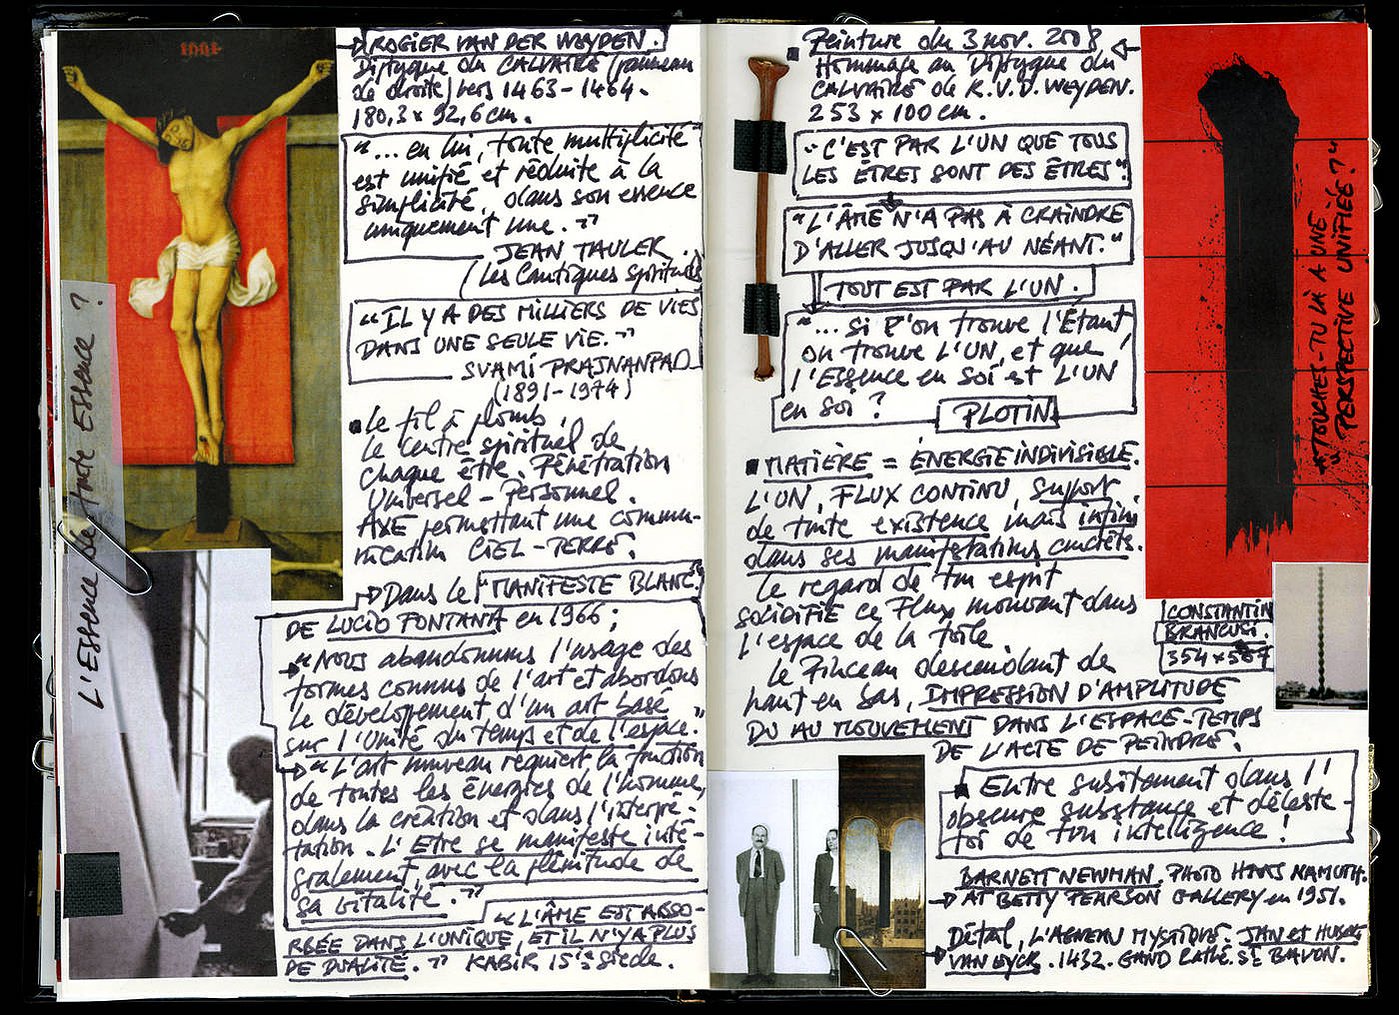 INRI
ROGIER VAN DER WEYDEN.
Diptyque du CALVAIRE (panneau
de droite) vers 1463-1464.
180,3 x 92,6 cm.
"... en lui, toute multiplicité
est unifié et réduite à la
simplicité, dans son essence
uniquement une."
JEAN TAULER.
(Les Cantiques spirituels)
"IL Y A DES MILLIERS DE VIES
DANS UNE SEULE VIE."
SVAMI PRAJNANPAD
(1891-1974)
Le fil à plomb,
Le centre spirituel de
chaque être. Pénétration
Universel - Personnel.
AXE permettant une commu-
nication CIEL-TERRE.
Dans le "MANIFESTE BLANC"
DE LUCIO FONTANA en 1966;
"Nous abandonnons l'usage des
formes connus de l'art et abordons
le développement d'un art basé
sur l'Unité du temps et de l'espace."
"L'art nouveau requiert la fonction
de toutes les énergies de l'homme,
dans la création et dans l'interpré-
tation. L'Etre se manifeste inté-
gralement, avec la plénitude de
sa vitalité."
"L'ÂME EST ABSO-
RBÉE DANS L'UNIQUE, ET IL N'Y A PLUS
DE DUALITÉ." KABIR 15ième siècle.
L'Essence de toute Essence ?
Peinture du 3 nov. 2008
Hommage au Diptyque du
CALVAIRE de R.V.D. WEYDEN.
253 x 100 cm.
"C'EST PAR L'UN QUE TOUS
LES ÊTRES SONT DES ÊTRES"
"L'ÂME N'A PAS À CRAINDRE
D'ALLER JUSQU'AU NÉANT."
TOUT EST PAR L'UN.
"... Si l'on trouve l'Étant,
on trouve L'UN, et que
l'Essence en soi est L'UN
en soi ?
PLOTIN
MATIÈRE = ÉNERGIE INDIVISIBLE.
L'UN, FLUX CONTINU, Suport
de toute existence mais infini
dans ses manifestations concrèts.
Le regard de ton esprit
SOLIDIFIE ce Flux mouvant dans
l'espace de la toile.
Le Pinceau descendant de
haut en bas, IMPRESSION D'AMPLITUDE
DU AU MOUVEMENT DANS L'ESPACE-TEMPS
DE L'ACTE DE PEINDRE.
Entre subitement dans l'
obscure substance et déleste-
toi de ton intelligence !
BARNETT NEWMAN. PHOTO HANS NAMUTH.
AT BETTY PEARSON GALLERY en 1951.
Détail, L'AGNEAU MYSTIQUE. JAN et HUBERT
VAN EYCK. 1432. GAND CATHE. St BAVON.
ATTOUCHES-TU LÀ A UNE
"PERSPECTIVE UNIFIÉE ?"
CONSTANTIN
BRANCUSI.